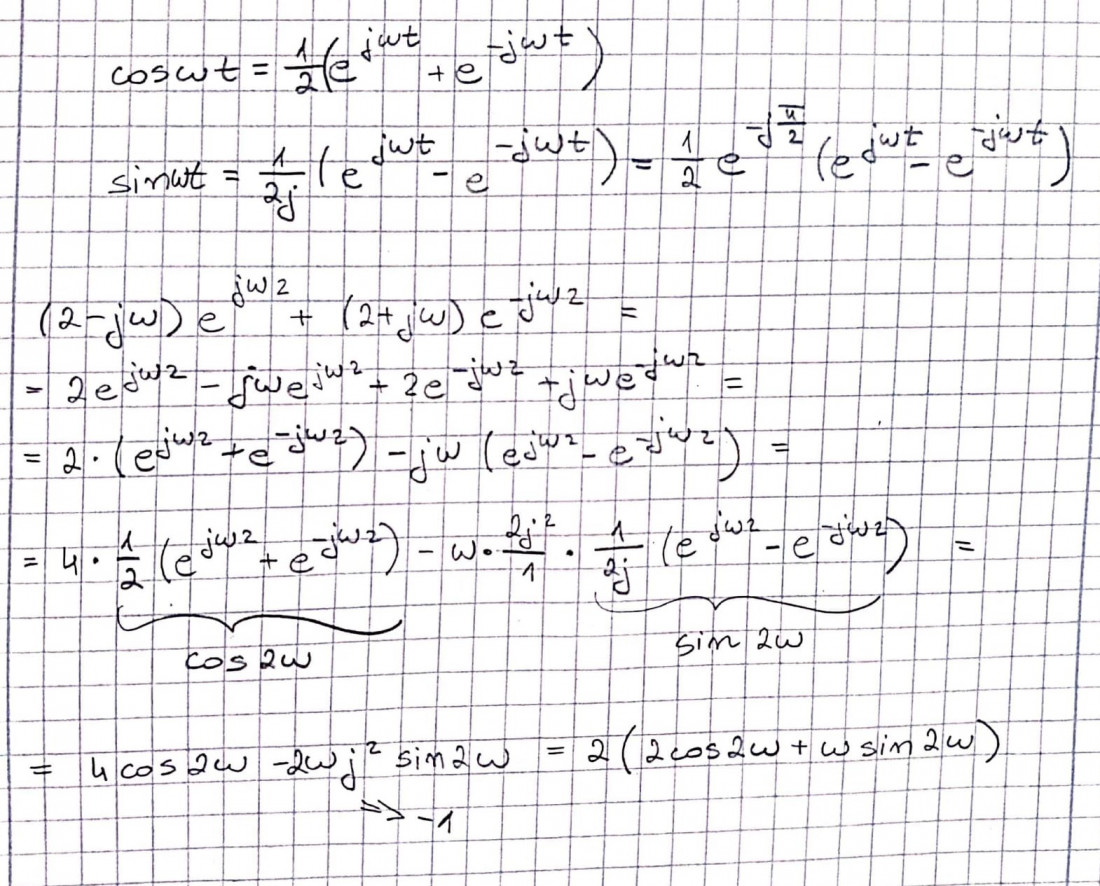 cosωt = 1/2 (e^{jωt} + e^{-jωt})
sinωt = 1/2j (e^{jωt} - e^{-jωt}) = 1/2 e^{-jπ/2} (e^{jωt} - e^{-jωt})
(2-jω) e^{jω2} + (2+jω) e^{-jω2} =
= 2e^{jω2} - jωe^{jω2} + 2e^{-jω2} + jωe^{-jω2} =
= 2·(e^{jω2} + e^{-jω2}) - jω (e^{jω2} - e^{-jω2}) =
= 4 · 1/2 (e^{jω2} + e^{-jω2}) - ω · 2j²/1 · 1/2j (e^{jω2} - e^{-jω2}) =
cos 2ω sin 2ω
= 4cos2ω - 2ωj² sin2ω = 2(2cos2ω + ω sin2ω)
=> -1